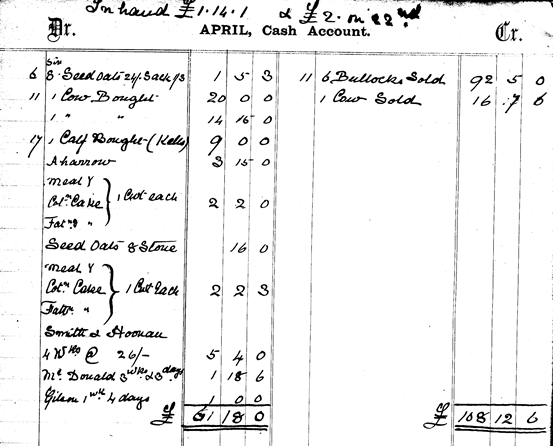 In hand £1.14.1 & £2. on 22nd
Dr. APRIL, Cash Account. Cr.
six
6 8. Seed Oats 24/ Sack /3 1 5 3
11 6 Bullocks Sold 92 5 0
11 1 Cow Bought 20 0 0
1 Cow Sold 16 7 6
1 " " 14 15 0
17 1 Calf Bought (Kells) 9 0 0
A harrow 3 15 0
Meal Y
Cotn Cake } 1 Cwt each 2 2 0
Fatng "
Seed Oats 8 Stone 16 0
Meal Y
Cotn Cake } 1 Cwt Each 2 2 3
Fattn "
Smith & Noonan
4 Wks @ 26/- 5 4 0
Mc Donald 3 wks & 3 days 1 18 6
Gilson 1 wk 4 days 1 0 0
£ 61 18 0
£ 108 12 6